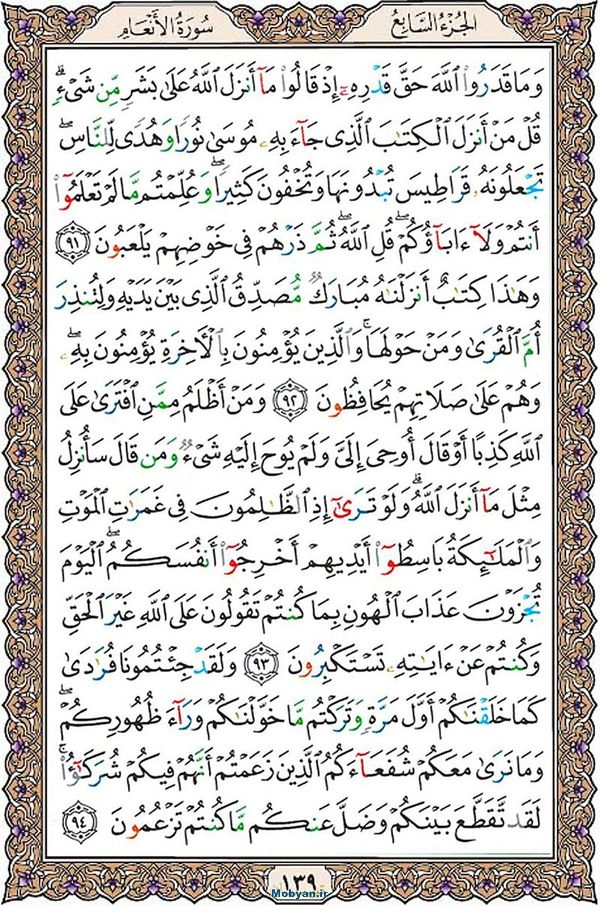 الجُزءُ السَّابِع سُورَةُ الأَنعَام
وَمَا قَدَرُوا۟ ٱللَّهَ حَقَّ قَدْرِهِۦٓ إِذْ قَالُوا۟ مَآ أَنزَلَ ٱللَّهُ عَلَىٰ بَشَرٍ مِّن شَىْءٍۗ
قُلْ مَنْ أَنزَلَ ٱلْكِتَـٰبَ ٱلَّذِى جَآءَ بِهِۦ مُوسَىٰ نُورًا وَهُدًى لِّلنَّاسِۖ
تَجْعَلُونَهُۥ قَرَاطِيسَ تُبْدُونَهَا وَتُخْفُونَ كَثِيرًاۖ وَعُلِّمْتُم مَّا لَمْ تَعْلَمُوٓا۟
أَنتُمْ وَلَآ ءَابَآؤُكُمْۖ قُلِ ٱللَّهُۖ ثُمَّ ذَرْهُمْ فِى خَوْضِهِمْ يَلْعَبُونَ ٩١
وَهَـٰذَا كِتَـٰبٌ أَنزَلْنَـٰهُ مُبَارَكٌ مُّصَدِّقُ ٱلَّذِى بَيْنَ يَدَيْهِ وَلِتُنذِرَ
أُمَّ ٱلْقُرَىٰ وَمَنْ حَوْلَهَاۚ وَٱلَّذِينَ يُؤْمِنُونَ بِٱلْـَٔاخِرَةِ يُؤْمِنُونَ بِهِۦۖ
وَهُمْ عَلَىٰ صَلَاتِهِمْ يُحَافِظُونَ ٩٢ وَمَنْ أَظْلَمُ مِمَّنِ ٱفْتَرَىٰ عَلَى
ٱللَّهِ كَذِبًا أَوْ قَالَ أُوحِىَ إِلَىَّ وَلَمْ يُوحَ إِلَيْهِ شَىْءٌ وَمَن قَالَ سَأُنزِلُ
مِثْلَ مَآ أَنزَلَ ٱللَّهُۗ وَلَوْ تَرَىٰٓ إِذِ ٱلظَّـٰلِمُونَ فِى غَمَرَٰتِ ٱلْمَوْتِ
وَٱلْمَلَـٰٓئِكَةُ بَاسِطُوٓا۟ أَيْدِيهِمْ أَخْرِجُوٓا۟ أَنفُسَكُمُۖ ٱلْيَوْمَ
تُجْزَوْنَ عَذَابَ ٱلْهُونِ بِمَا كُنتُمْ تَقُولُونَ عَلَى ٱللَّهِ غَيْرَ ٱلْحَقِّ
وَكُنتُمْ عَنْ ءَايَـٰتِهِۦ تَسْتَكْبِرُونَ ٩٣ وَلَقَدْ جِئْتُمُونَا فُرَٰدَىٰ
كَمَا خَلَقْنَـٰكُمْ أَوَّلَ مَرَّةٍ وَتَرَكْتُم مَّا خَوَّلْنَـٰكُمْ وَرَآءَ ظُهُورِكُمْۖ
وَمَا نَرَىٰ مَعَكُمْ شُفَعَآءَكُمُ ٱلَّذِينَ زَعَمْتُمْ أَنَّهُمْ فِيكُمْ شُرَكَـٰٓؤُا۟ۚ
لَقَد تَّقَطَّعَ بَيْنَكُمْ وَضَلَّ عَنكُم مَّا كُنتُمْ تَزْعُمُونَ ٩٤
١٣٩
Mobyan.ir